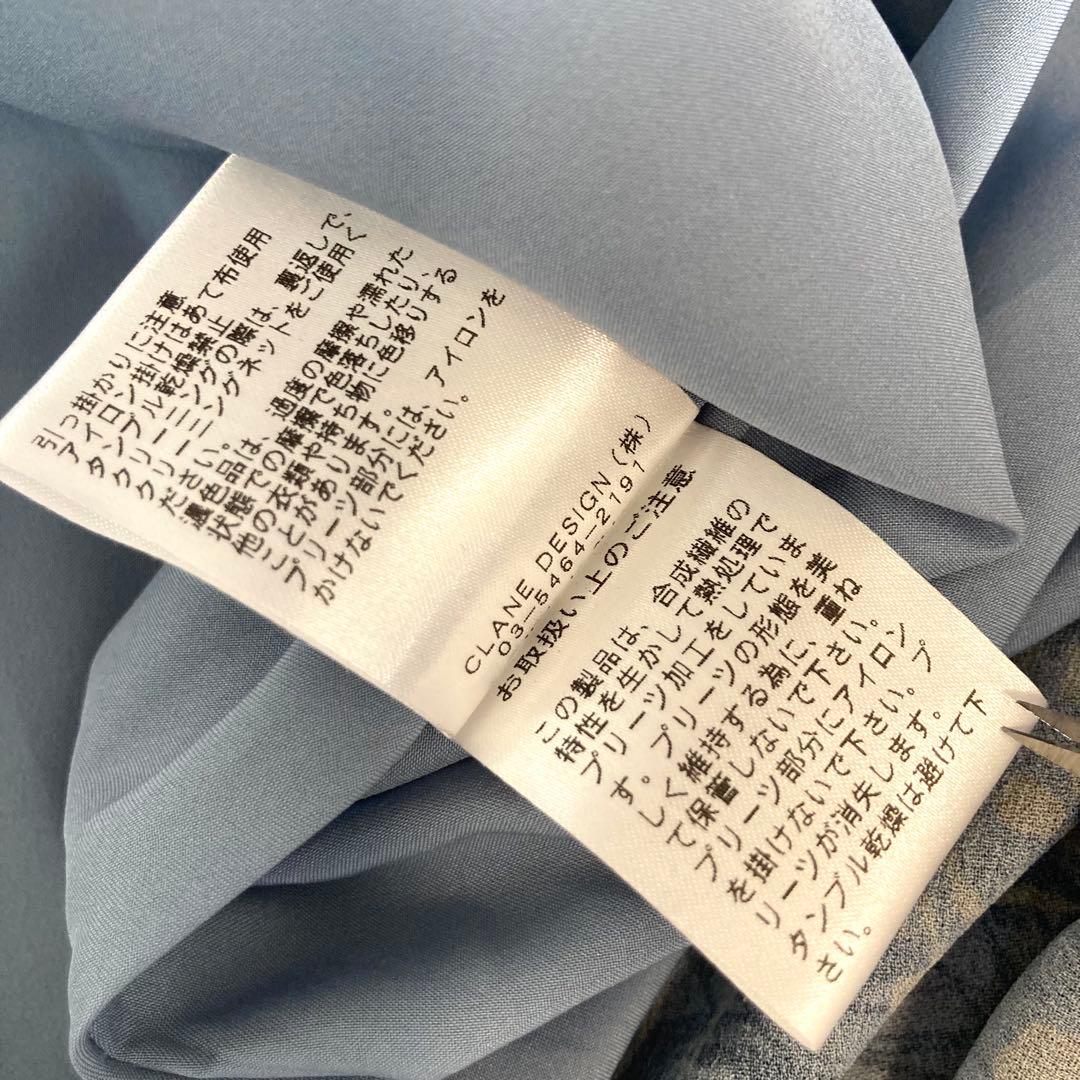 引っ掛かりに注意
アイロン掛けはあて布使用
タンブル乾燥禁止
クリーニングの際は、裏返しで、
クリーニングネットをご使用く
ださい。
濃色品は、過度の摩擦や濡れた
状態での摩擦で色落ちしたり、
他の衣類や持ち物に色移りする
ことがあります。
プリーツ部分には、アイロンを
かけないでください。
CLANE DESIGN(株)
03-5464-2191
お取扱い上のご注意
この製品は、合成繊維の
特性を生かして熱処理で
プリーツ加工をしていま
す。プリーツの形態を美
しく維持する為に、重ね
て保管しないで下さい。
プリーツ部分にアイロン
を掛けないで下さい。プ
リーツが消失します。
タンブル乾燥は避けて下
さい。